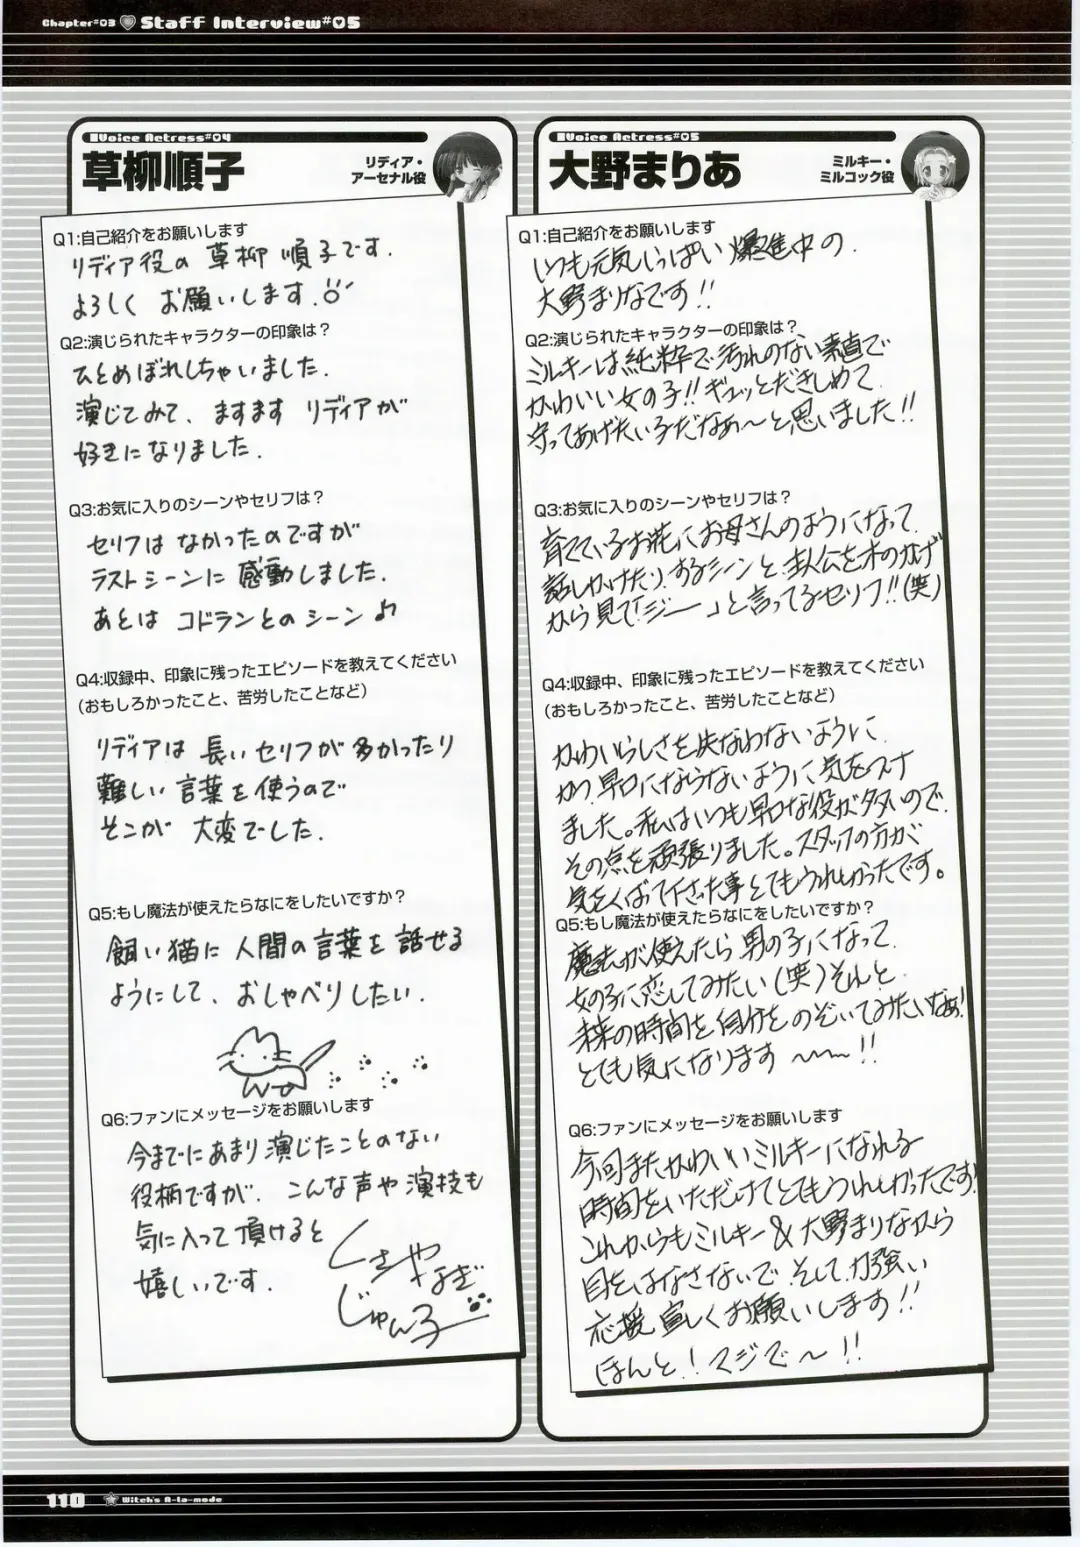 Chapter#03 Staff Interview#05
Voice Actress#04
草柳順子
リディア・
アーセナル役
Q1:自己紹介をお願いします
リディア役の 草柳 順子です.
よろしく お願いします.
Q2:演じられたキャラクターの印象は？
ひとめぼれしちゃいました.
演じてみて、ますます リディアが
好きになりました.
Q3:お気に入りのシーンやセリフは？
セリフは なかったのですが
ラストシーンに 感動しました.
あとは コドランとのシーン♪
Q4:収録中、印象に残ったエピソードを教えてください
（おもしろかったこと、苦労したことなど）
リディアは 長いセリフが 多かったり
難しい 言葉を 使うので
そこが 大変でした.
Q5:もし魔法が使えたらなにをしたいですか？
飼い猫に 人間の言葉を 話せる
ようにして、おしゃべりしたい.
Q6:ファンにメッセージをお願いします
今までにあまり演じたことのない
役柄ですが. こんな声や演技も
気に入って頂けると
嬉しいです.
くさやなぎ
じゅん子
Voice Actress#05
大野まりあ
ミルキー・
ミルコック役
Q1:自己紹介をお願いします
いつも元気いっぱい爆進中の
大野まりなです!!
Q2:演じられたキャラクターの印象は？
ミルキーは純粋で汚れのない素直で
かわいい女の子!!ギュッとだきしめて
守ってあげたい子だなぁ〜と思いました!!
Q3:お気に入りのシーンやセリフは？
育てているお花にお母さんのようになって
話しかけたりするシーンと、主人公を木のかげ
から見て「ジー」と言ってるセリフ!!(笑)
Q4:収録中、印象に残ったエピソードを教えてください
（おもしろかったこと、苦労したことなど）
かわいらしさを失なわないように
かつ早口にならないように気をつけ
ました。私はいつも早口な役が多いので、
その点を頑張りました。スタッフの方が
気をくばって下さった事とてもうれしかったです。
Q5:もし魔法が使えたらなにをしたいですか？
魔法が使えたら男の子になって
女の子に恋してみたい(笑)そんと
未来の時間を自分をのぞいてみたいなぁ!
とても気になります〜〜!!
Q6:ファンにメッセージをお願いします
今回またかわいいミルキーになれる
時間をいただけてとてもうれしかったです!
これからもミルキー&大野まりなから
目をはなさないで そして力強い
応援宜しくお願いします!!
ほんと! マジで〜!!
110 Witch's A-la-mode